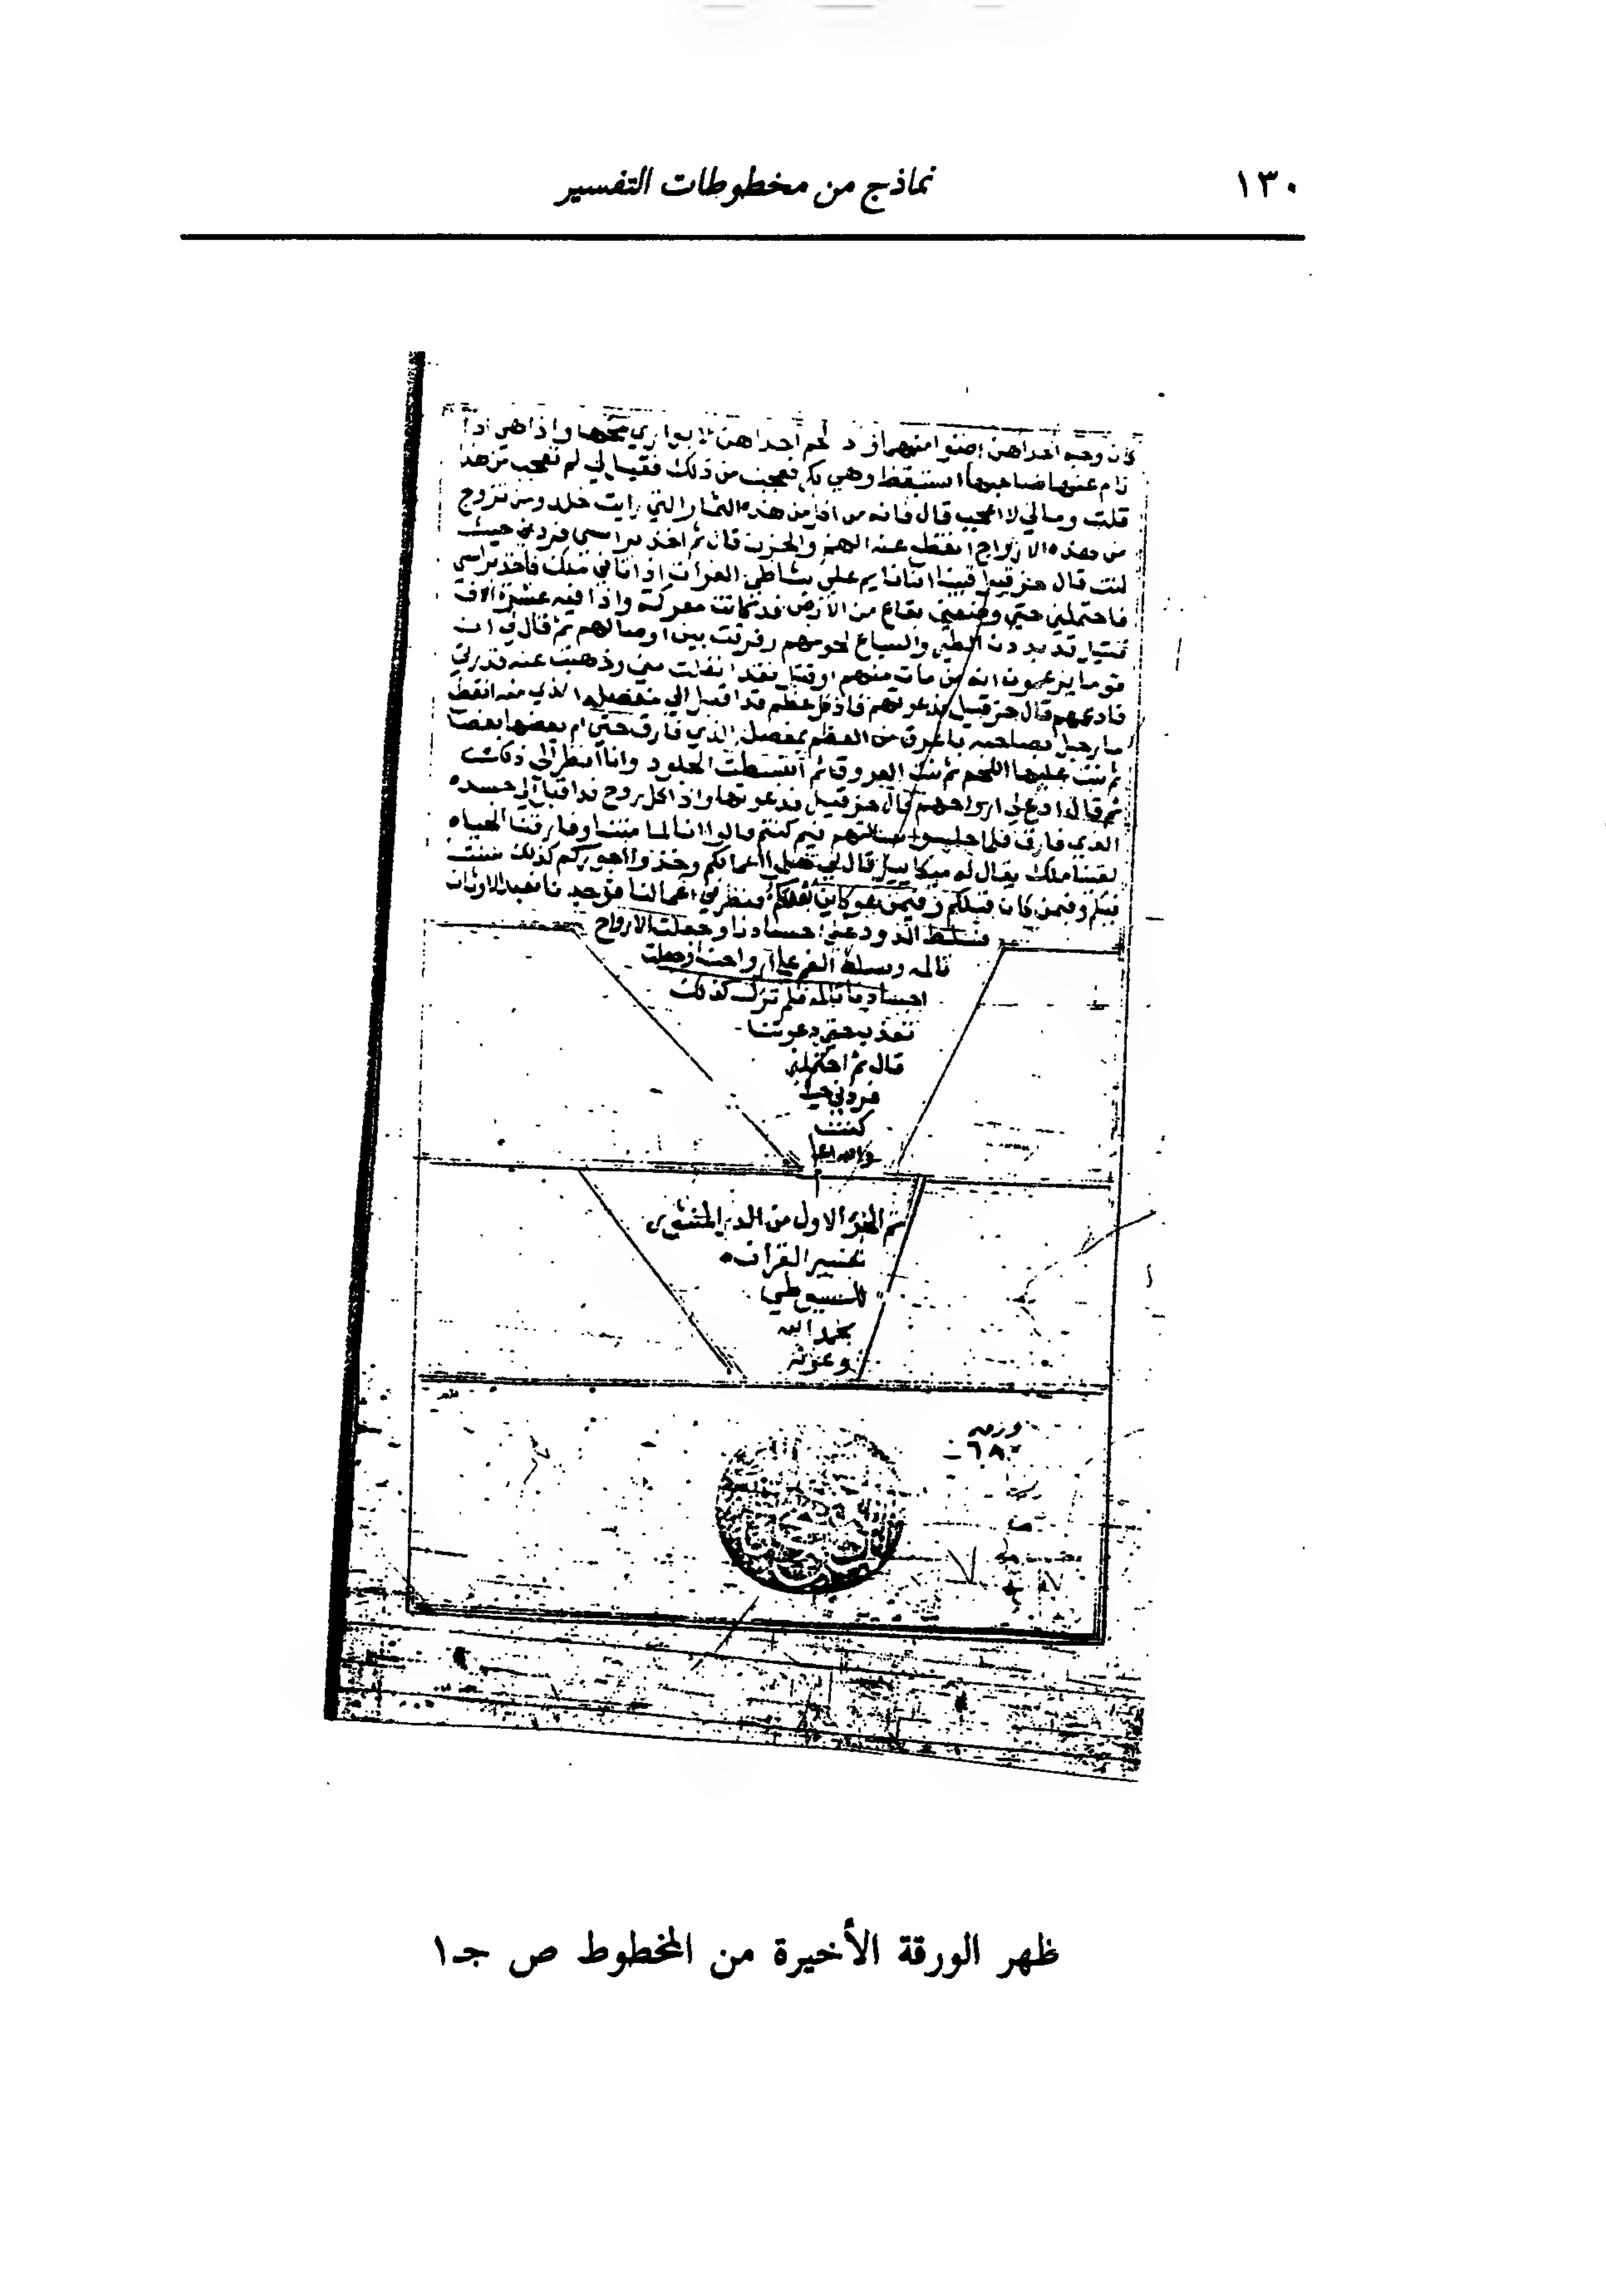 ١٣٠
نماذج من مخطوطات التفسير
كان وجه احداهن اضوا منهما ولحم احداهن لا يواري مخها واذا هي اذا
نام عنها صاحبها استيقظ وهي بكر فعجبت من ذلك فقيل لي لم تعجب من هذا
قلت ومالي لا اعجب قال فانه من اكل من هذه الثمار التي رايت خلد ومن تزوج
من هذه الازواج انقطع عنه الهم والحزن قال ثم اخذ براسي فردني حيث
كنت قال حزقيل فبينا انا نايم على شاطي الفرات اذ اتاني ملك فاخذ براسي
فاحتملني حتى وضعني بقاع من الارض قد كانت معركة واذا فيه عشرة الاف
قتيل قد بددت الطير والسباع لحومهم وفرقت بين اوصالهم ثم قال لي ان
قوما يزعمون انه من مات منهم او قتل فقد انفلت مني وذهبت عنه قدرتي
فادعهم قال حزقيل فدعوتهم فاذا كل عظم قد اقبل الى مفصله الذي منه انقطع
ما رجل بصاحبه باعرف من العظم بمفصله الذي فارق حتى ام بعضها بعضا
ثم نبت عليها اللحم ثم نبتت العروق ثم انبسطت الجلود وانا انظر الى ذلك
ثم قال ادع لي ارواحهم قال حزقيل فدعوتها واذا كل روح قد اقبل الى جسده
الذي فارق فلما جلسوا سالتهم فيم كنتم قالوا انا لما متنا وفارقنا الحياه
لقينا ملك يقال له ميكاييل قال هلموا اعمالكم وخذوا اجوركم كذلك سنتنا
فيكم وفيمن كان قبلكم وفيمن هو كاين بعدكم فنظر في اعمالنا فوجدنا نعبد الاوثان
فسلط الدود على اجسادنا وجعلت الارواح
تالمه وسلط الغم على ارواحنا وجعلت
اجسادنا تالمه فلم نزل كذلك
نعذب حتى دعوتنا
قال ثم احتملني
فردني حيث
كنت
والله اعلم
تم الجزء الاول من الدر المنثور في
تفسير القران
للسيوطي
بحمد الله
وعونه
ظهر الورقة الأخيرة من المخطوط ص جـ١